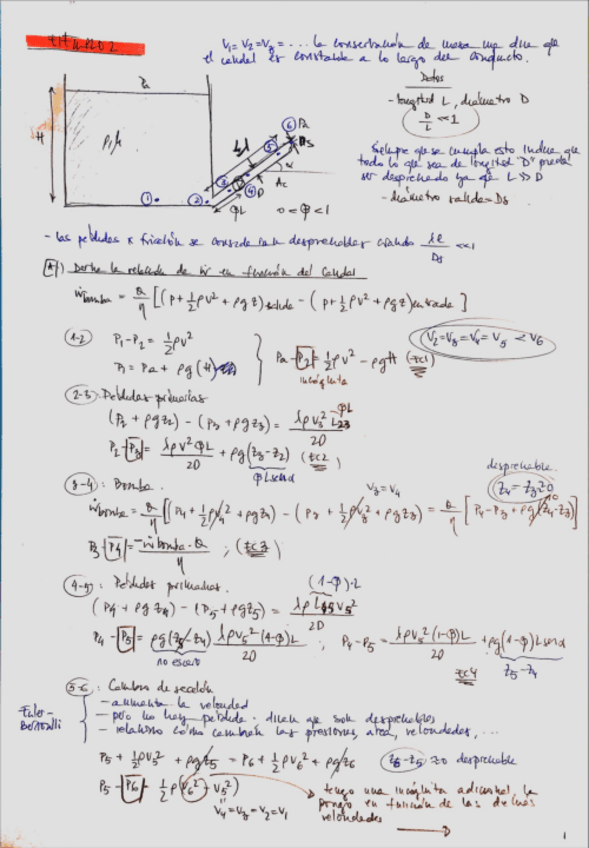 V₁ = V₂ = V₃ = ... la conservación de masa me dice que
el caudal es constante a lo largo del conducto.
Datos
- longitud L, diámetro D
D/L ≪ 1
Siempre que se cumpla esto indica que
todo lo que sea de longitud "D" puede
ser despreciado ya que L ≫ D
- diámetro salida = Ds
Pa
H
ρ, μ
①
②
③
④
⑤
⑥ Pa
Ds
L, λ
α
D
Ac
ϕL
0 < ϕ < 1
- las pérdidas x fricción se consideran despreciables cuando λe/Ds ≪ 1
A) Derive la relación de Ẇ en función del caudal
Ẇbomba = Q/η [(P + ½ρv² + ρgz)salida - (P + ½ρv² + ρgz)entrada]
①-②
P₁ - P₂ = ½ρv²
P₁ = Pa + ρg(H)
Pa - P₂ = ½ρv² - ρgH (ec1)
incógnita
V₂ = V₃ = V₄ = V₅ < V₆
②-③: Pérdidas primarias
(P₂ + ρgz₂) - (P₃ + ρgz₃) = λρv₃² L₂₃ / 2D
ϕL
P₂ - P₃ = λρv²ϕL / 2D + ρg(z₃ - z₂) (ec2)
ϕL senα
③-④: Bomba.
V₃ = V₄
despreciable
z₄ - z₃ ≈ 0
Ẇbomba = Q/η [(P₄ + ½ρv₄² + ρgz₄) - (P₃ + ½ρv₃² + ρgz₃)] = Q/η [P₄ - P₃ + ρg(z₄ - z₃)]
P₃ - P₄ = -Ẇbomba · Q / η ; (ec3)
④-⑤: Pérdidas primarias.
(1-ϕ)·L
(P₄ + ρgz₄) - (P₅ + ρgz₅) = λρ L₄₅ v₅² / 2D
P₄ - P₅ = ρg(z₅ - z₄) λρv₅²(1-ϕ)L / 2D ; P₄ - P₅ = λρv₅²(1-ϕ)L / 2D + ρg(1-ϕ)L senα
no es cero
ec4
z₅ - z₄
⑤-⑥: Cambio de sección
Euler-
Bernoulli
- aumenta la velocidad
- pero no hay pérdida. dicen que son despreciables
- relaciono cómo cambian las presiones, área, velocidades, ...
P₅ + ½ρv₅² + ρgz₅ = P₆ + ½ρv₆² + ρgz₆
z₆ - z₅ ≈ 0 despreciable
P₅ - P₆ = ½ρ(v₆² - v₅²)
V₄ = V₃ = V₂ = V₁
tengo una incógnita adicional, la
pongo en función de las demás
velocidades
1